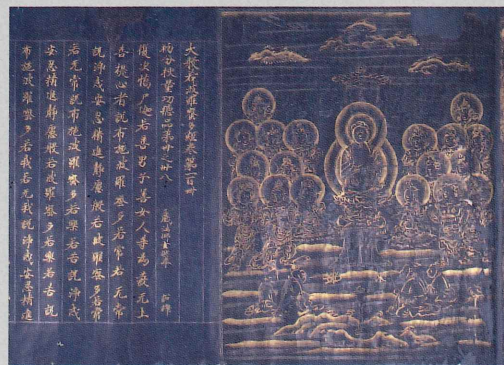 大般若波羅蜜多經卷第一百卌
初分挍量功德品第卅之卅八
三藏法師玄奘奉 詔譯
復次憍尸迦若善男子善女人等為發无上
菩提心者說布施波羅蜜多若常若无常
說淨戒安忍精進靜慮般若波羅蜜多若常
若无常說布施波羅蜜多若樂若苦說淨戒
安忍精進靜慮般若波羅蜜多若樂若苦說
布施波羅蜜多若我若无我說淨戒安忍精進